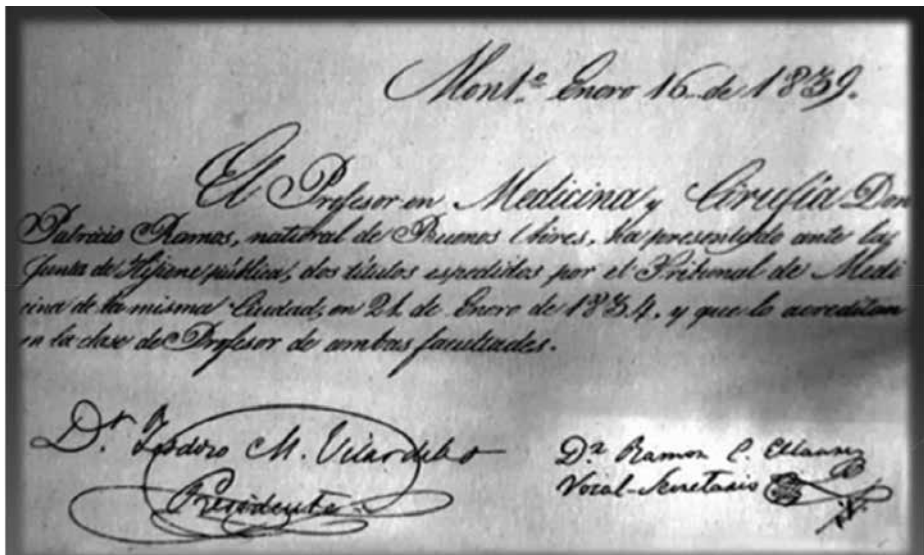 Mont.º Enero 16 de 1839.
El Profesor en Medicina y Cirujía Don
Patricio Ramos, natural de Buenos Aires, ha presentado ante la
Junta de Hijiene pública, dos títulos espedidos por el Tribunal de Medi
cina de la misma Ciudad, en 21 de Enero de 1834, y que lo acreditan
en la clase de Profesor de ambas facultades.
Dr. Teodoro M. Vilardebo
Presidente
Dr. Ramon C.
Vocal-Secretario